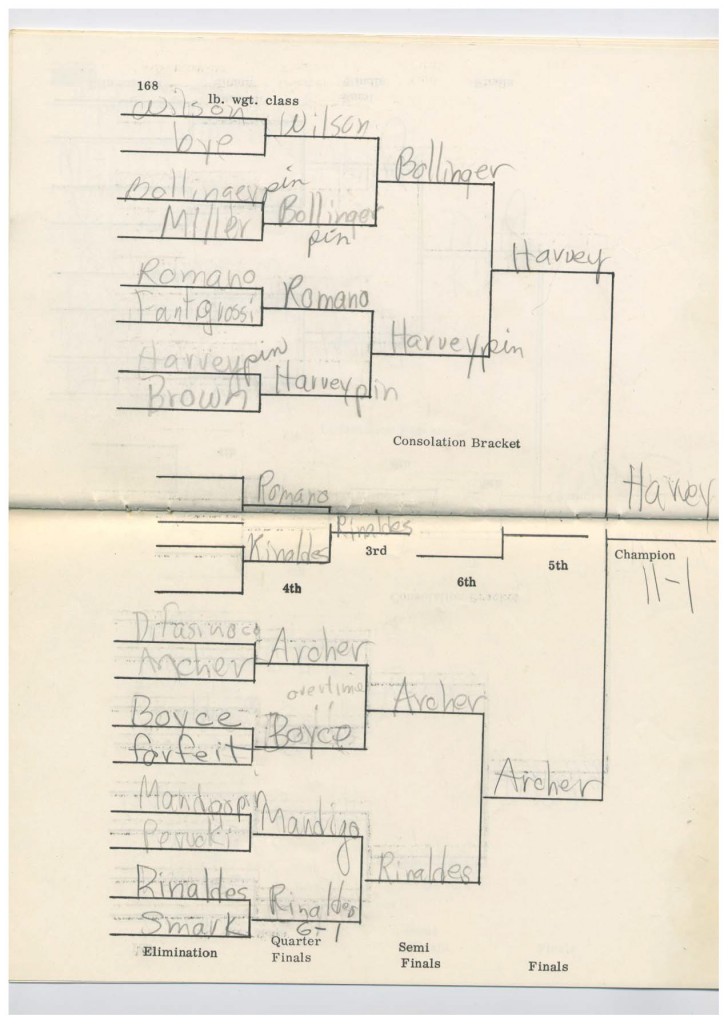 168
lb. wgt. class
Wilson
bye
Wilson
Bollinger pin
Miller
Bollinger
pin
Bollinger
Romano
Fantigrossi
Romano
Harvey pin
Brown
Harvey pin
Harvey pin
Harvey
Consolation Bracket
Romano
Rinaldes
Rinaldes
3rd
4th
6th
5th
Harvey
Champion
11-1
Archer
Archer
overtime
Boyce
forfeit
Boyce
Archer
Mandigo
Rinaldes
Smark
Rinaldes
6-1
Rinaldes
Archer
Elimination
Quarter
Finals
Semi
Finals
Finals